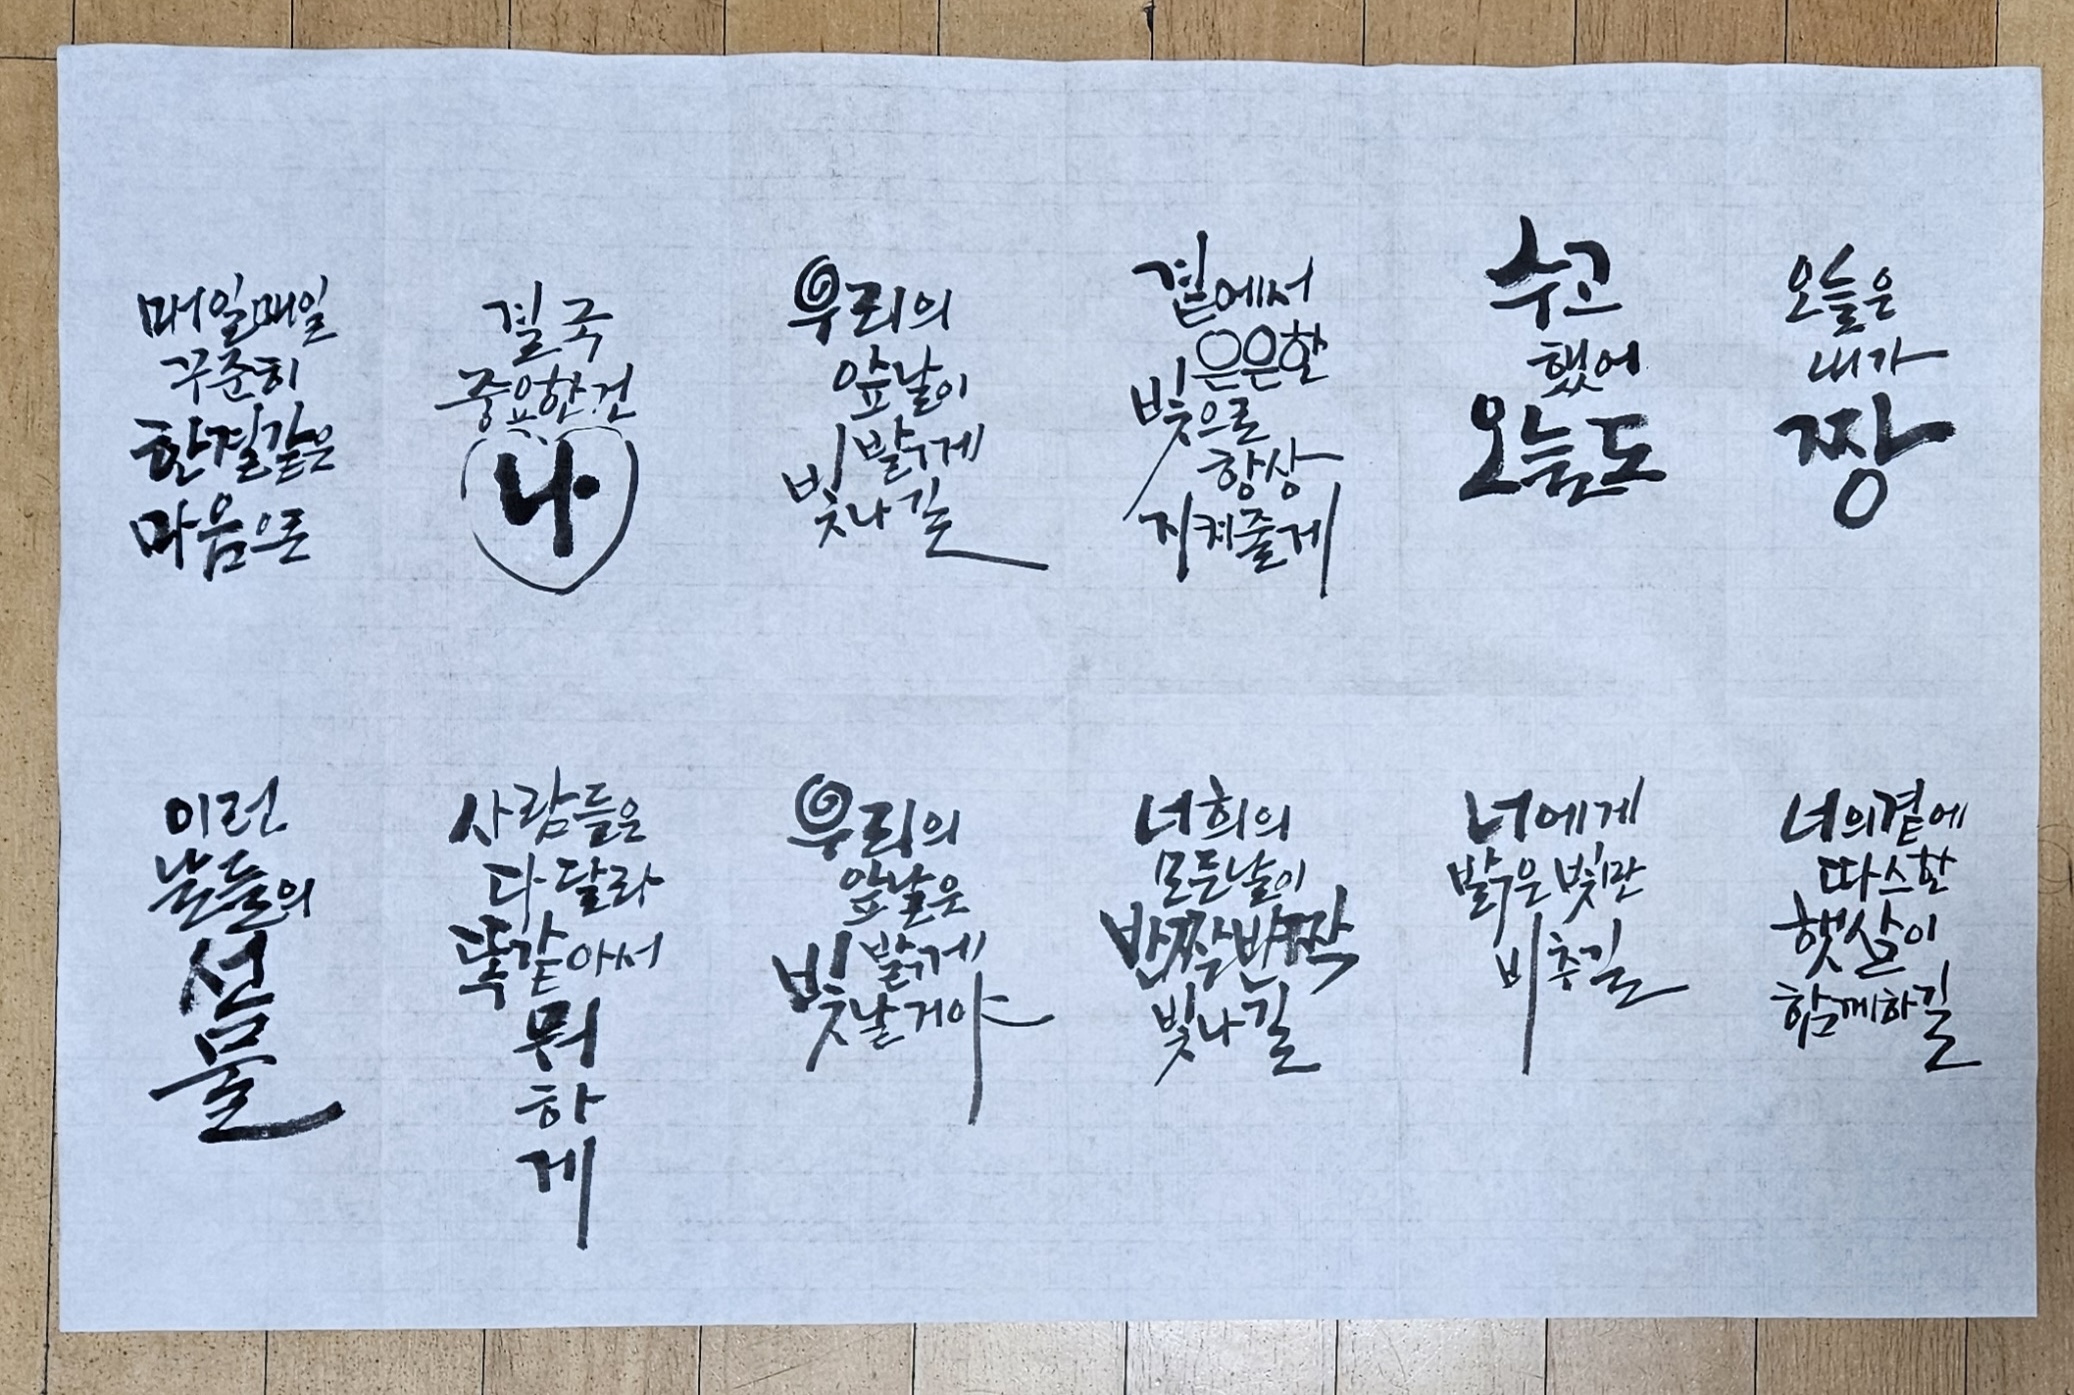 매일매일
꾸준히
한결같은
마음으로
결국
중요한건
나
우리의
앞날이
밝게
빛나길
곁에서
은은한
빛으로
항상
지켜줄게
수고
했어
오늘도
오늘은
내가
짱
이런
날들의
선
물
사람들은
다 달라
똑같아서
뭐
하
게
우리의
앞날은
밝게
빛날거야
너희의
모든날이
반짝반짝
빛나길
너에게
밝은 빛만
비추길
너의곁에
따스한
햇살이
함께하길